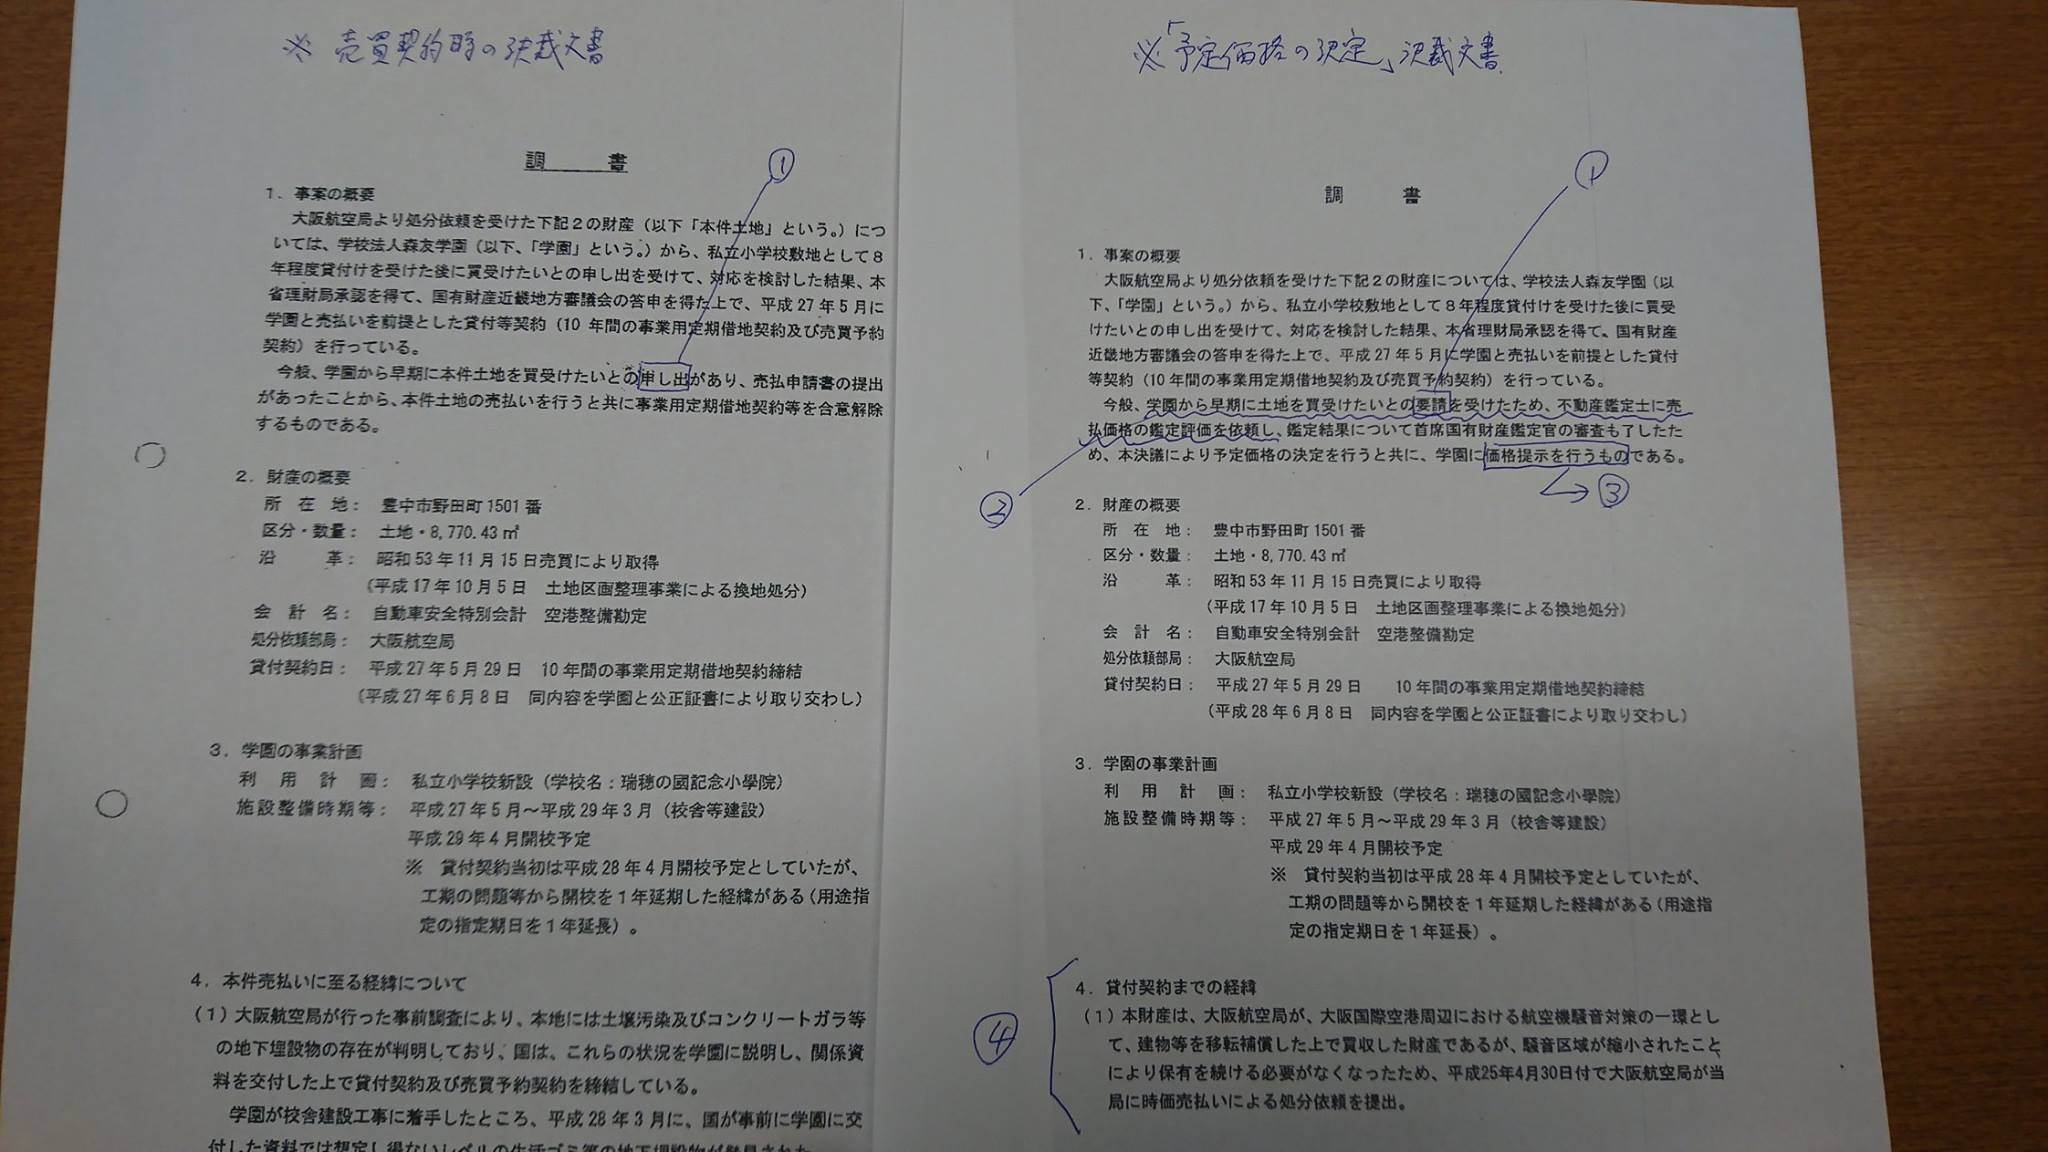 ※ 売買契約時の決裁文書
調　　　書
①
1．事案の概要
大阪航空局より処分依頼を受けた下記2の財産（以下「本件土地」という。）につ
いては、学校法人森友学園（以下、「学園」という。）から、私立小学校敷地として8
年程度貸付けを受けた後に買受けたいとの申し出を受けて、対応を検討した結果、本
省理財局承認を得て、国有財産近畿地方審議会の答申を得た上で、平成27年5月に
学園と売払いを前提とした貸付等契約（10 年間の事業用定期借地契約及び売買予約
契約）を行っている。
今般、学園から早期に本件土地を買受けたいとの申し出があり、売払申請書の提出
があったことから、本件土地の売払いを行うと共に事業用定期借地契約等を合意解除
するものである。
2．財産の概要
所　在　地：　豊中市野田町1501番
区分・数量：　土地・8,770.43㎡
沿　　　革：　昭和53年11月15日売買により取得
（平成17年10月5日　土地区画整理事業による換地処分）
会　計　名：　自動車安全特別会計　空港整備勘定
処分依頼部局：　大阪航空局
貸付契約日：　平成27年5月29日　10年間の事業用定期借地契約締結
（平成27年6月8日　同内容を学園と公正証書により取り交わし）
3．学園の事業計画
利　用　計　画：　私立小学校新設（学校名：瑞穂の國記念小學院）
施設整備時期等：　平成27年5月～平成29年3月（校舎等建設）
平成29年4月開校予定
※　貸付契約当初は平成28年4月開校予定としていたが、
工期の問題等から開校を1年延期した経緯がある（用途指
定の指定期日を1年延長）。
4．本件売払いに至る経緯について
（1）大阪航空局が行った事前調査により、本地には土壌汚染及びコンクリートガラ等
の地下埋設物の存在が判明しており、国は、これらの状況を学園に説明し、関係資
料を交付した上で貸付契約及び売買予約契約を締結している。
学園が校舎建設工事に着手したところ、平成28年3月に、国が事前に学園に交
付した資料では想定し得ないレベルの生活ゴミ等の地下埋設物が発見された
※「予定価格の決定」決裁文書
①
調　　　書
1．事案の概要
大阪航空局より処分依頼を受けた下記2の財産については、学校法人森友学園（以
下、「学園」という。）から、私立小学校敷地として8年程度貸付けを受けた後に買受
けたいとの申し出を受けて、対応を検討した結果、本省理財局承認を得て、国有財産
近畿地方審議会の答申を得た上で、平成27年5月に学園と売払いを前提とした貸付
等契約（10年間の事業用定期借地契約及び売買予約契約）を行っている。
今般、学園から早期に土地を買受けたいとの要請を受けたため、不動産鑑定士に売
払価格の鑑定評価を依頼し、鑑定結果について首席国有財産鑑定官の審査も了したた
め、本決議により予定価格の決定を行うと共に、学園に価格提示を行うものである。
②
③
2．財産の概要
所　在　地：　豊中市野田町1501番
区分・数量：　土地・8,770.43㎡
沿　　　革：　昭和53年11月15日売買により取得
（平成17年10月5日　土地区画整理事業による換地処分）
会　計　名：　自動車安全特別会計　空港整備勘定
処分依頼部局：　大阪航空局
貸付契約日：　平成27年5月29日　　10年間の事業用定期借地契約締結
（平成28年6月8日　同内容を学園と公正証書により取り交わし）
3．学園の事業計画
利　用　計　画：　私立小学校新設（学校名：瑞穂の國記念小學院）
施設整備時期等：　平成27年5月～平成29年3月（校舎等建設）
平成29年4月開校予定
※　貸付契約当初は平成28年4月開校予定としていたが、
工期の問題等から開校を1年延期した経緯がある（用途指
定の指定期日を1年延長）。
④
4．貸付契約までの経緯
（1）本財産は、大阪航空局が、大阪国際空港周辺における航空機騒音対策の一環とし
て、建物等を移転補償した上で買収した財産であるが、騒音区域が縮小されたこと
により保有を続ける必要がなくなったため、平成25年4月30日付で大阪航空局が当
局に時価売払いによる処分依頼を提出。